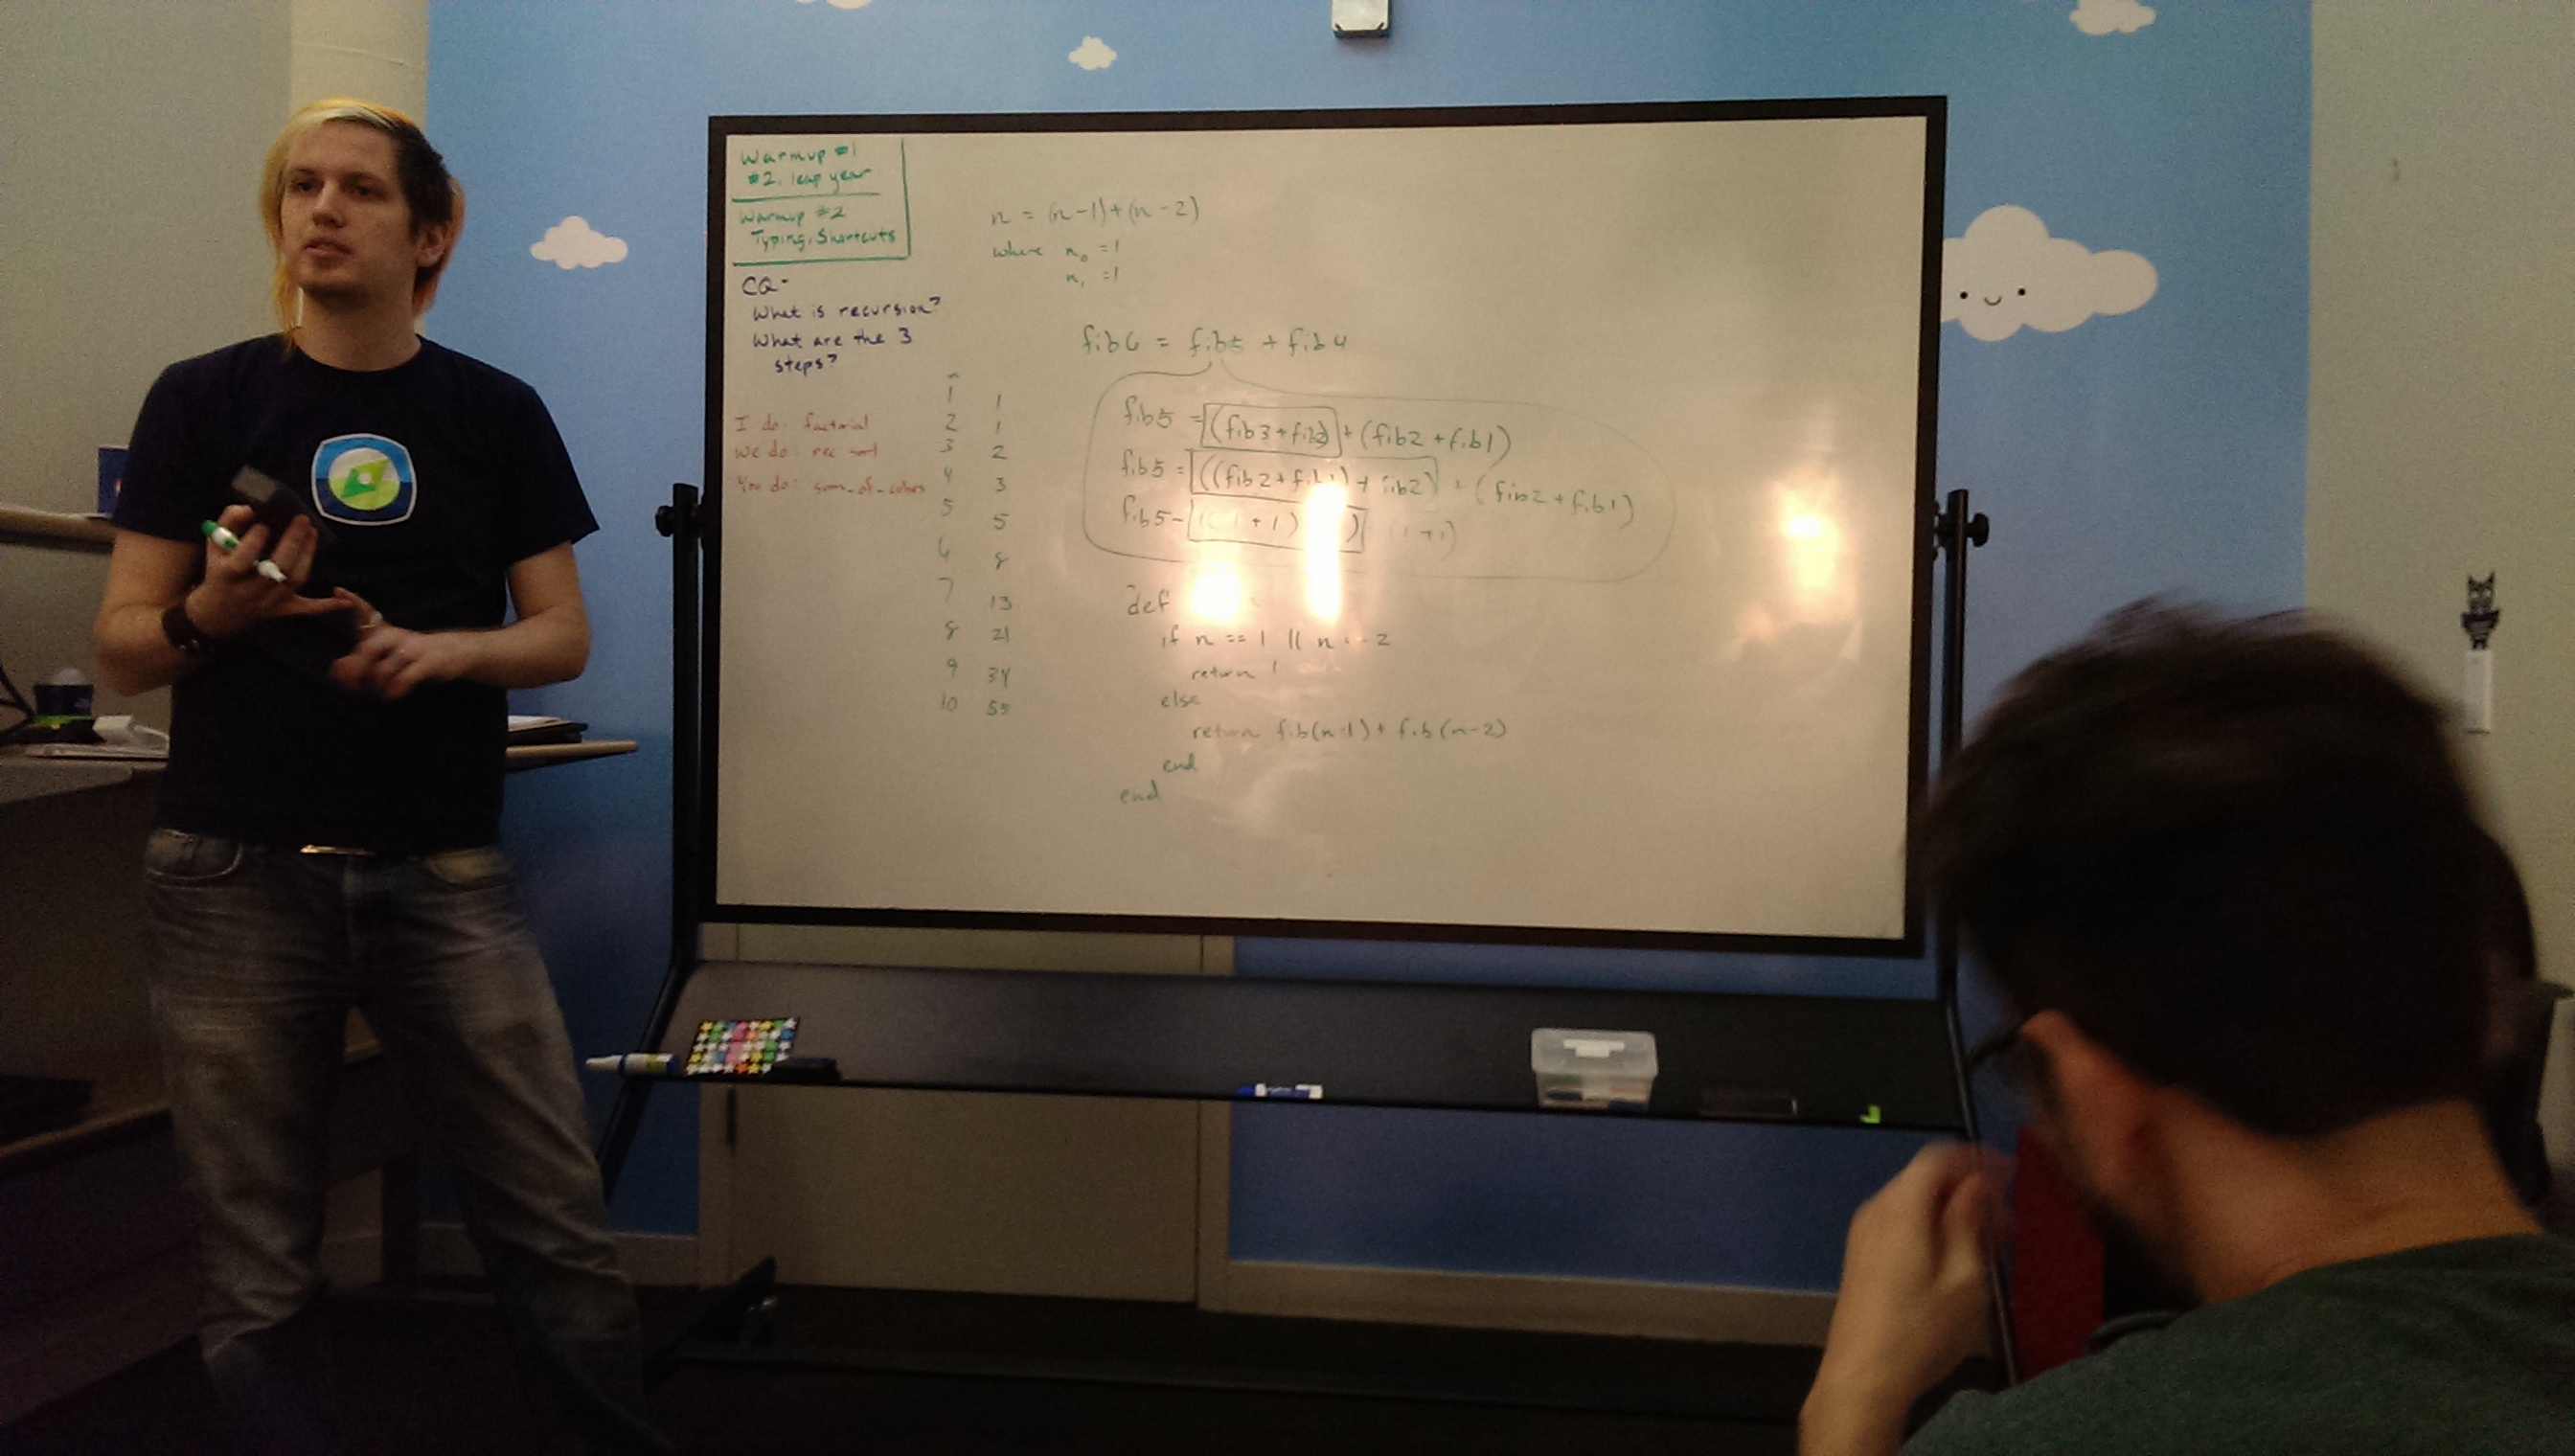 Warmup #1
#2. leap year
Warmup #2
Typing, Shortcuts
CQ-
What is recursion?
What are the 3
steps?
I do: factorial
We do: rec sort
You do: sum_of_cubes
n
1 1
2 1
3 2
4 3
5 5
6 8
7 13
8 21
9 34
10 55
n = (n-1)+(n-2)
where n₀ =1
n₁ =1
fib6 = fib5 + fib4
fib5 = (fib3+fib2) + (fib2 + fib1)
fib5 = ((fib2 + fib1) + fib2) + (fib2 + fib1)
fib5 = ((1 + 1) ) (1 + 1)
def
if n == 1 || n == 2
return 1
else
return fib(n-1) + fib(n-2)
end
end